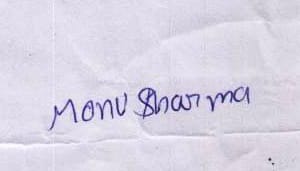 Monu Sharma